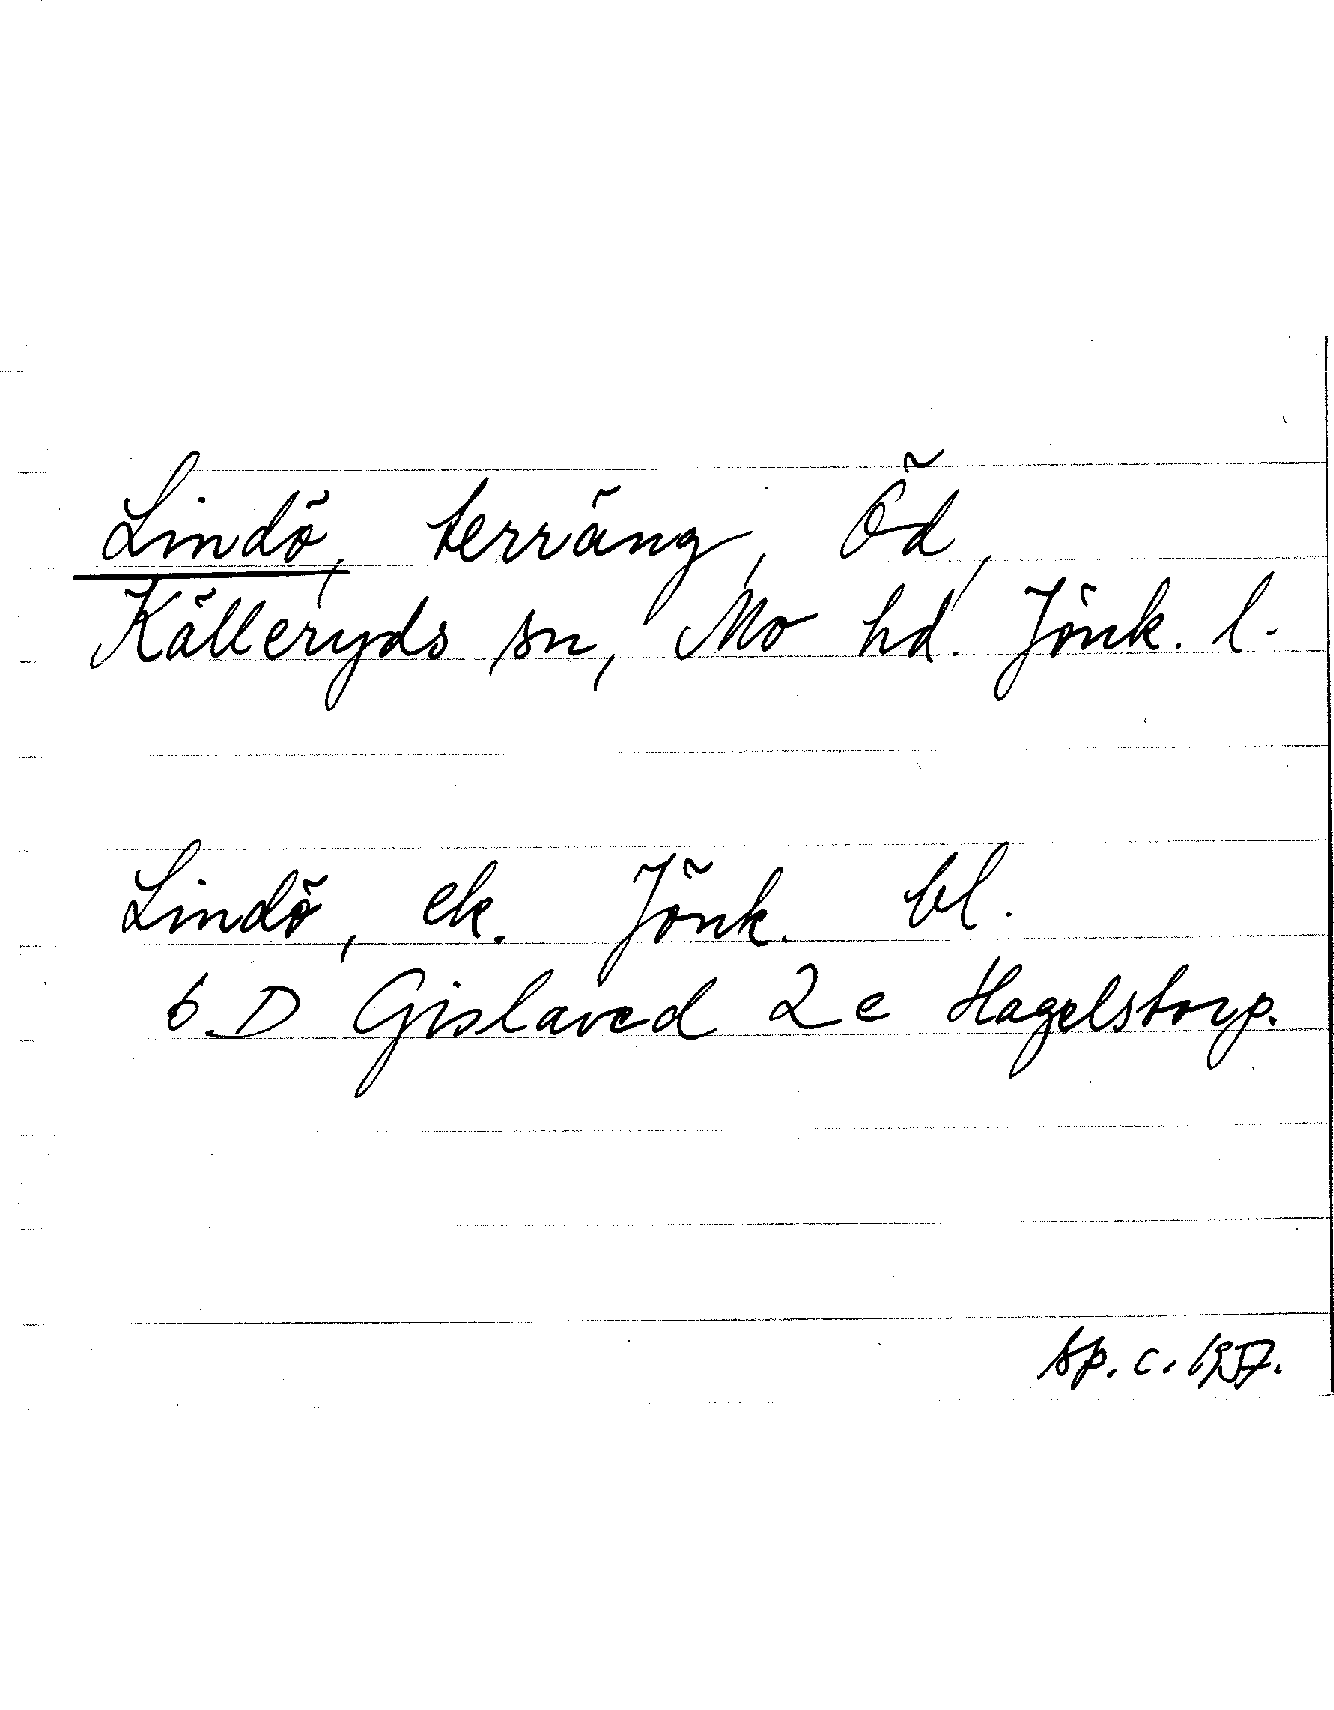 Lindö, terräng, Öd,
Källeryds sn, Mo hd. Jönk. l.
Lindö, ek. Jönk. bl.
6 D Gislaved 2 e Hagelstorp.
sp. c. 1957.